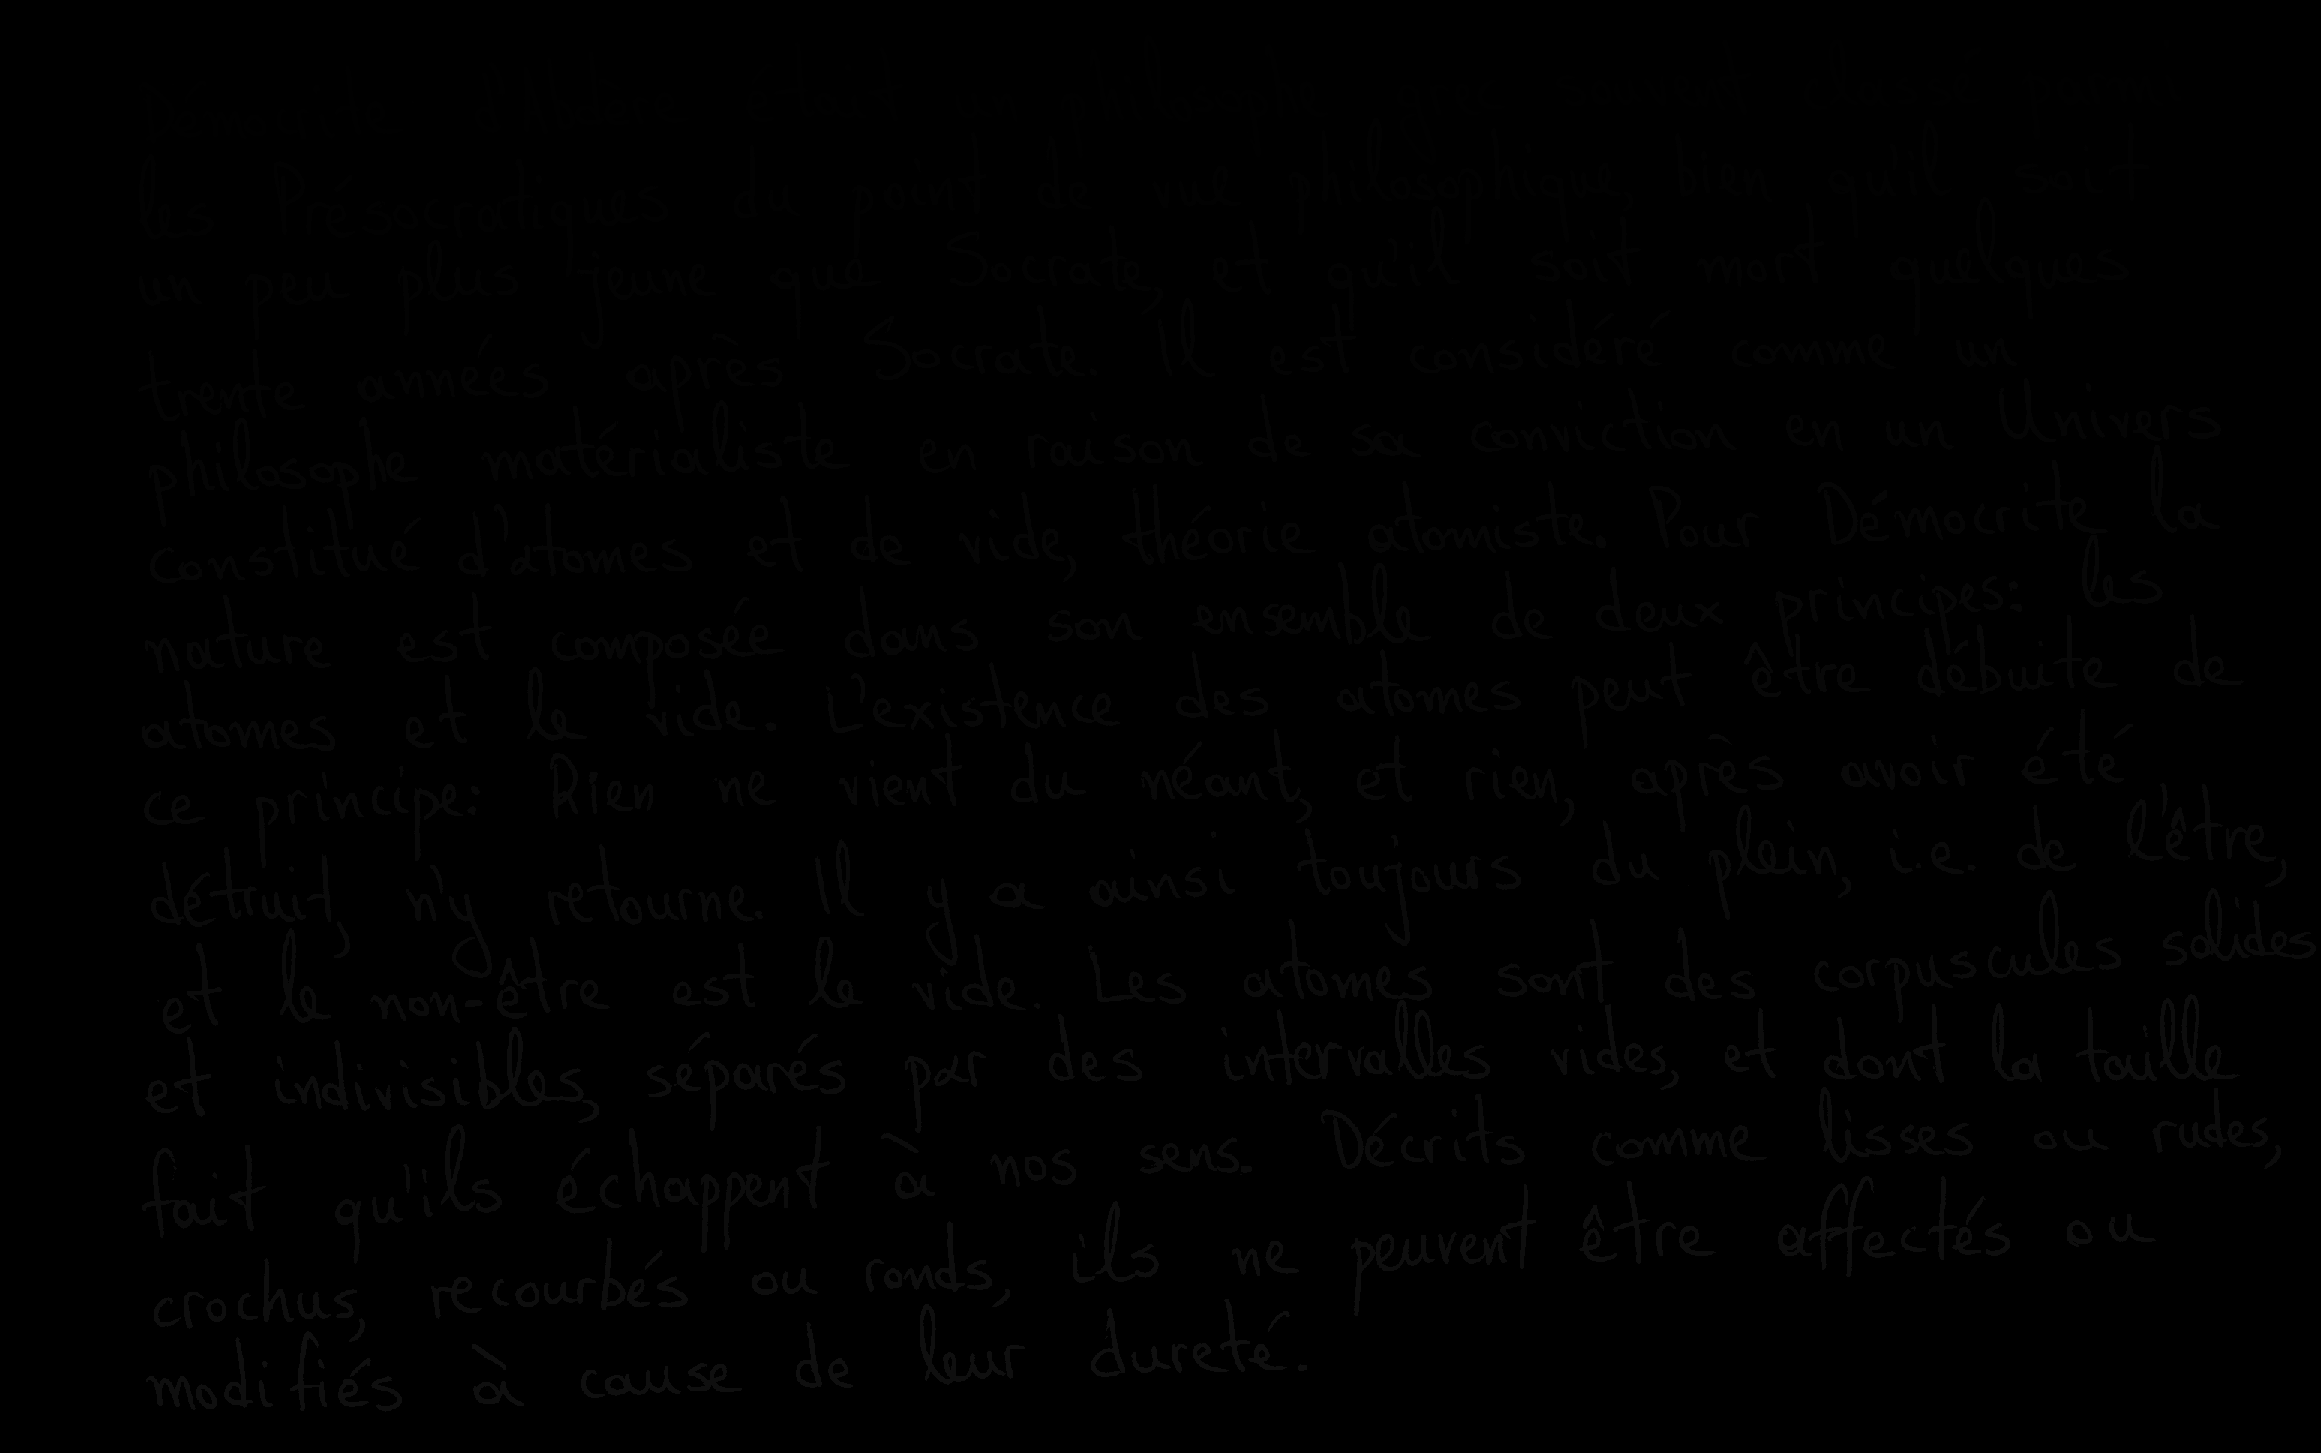 Démocrite d'Abdère était un philosophe
les Présocratiques du point de vue philosophique, bien qu'il soit
un peu plus jeune que Socrate, et qu'il soit mort quelques
trente années après Socrate. Il est considéré comme un
philosophe matérialiste en raison de sa conviction en un Univers
constitué d'atomes et de vide, théorie atomiste. Pour Démocrite la
nature est composée dans son ensemble de deux principes: les
atomes et le vide. L'existence des atomes peut être débuite de
ce principe: Rien ne vient du néant, et rien, après avoir été
détruit, n'y retourne. Il y a ainsi toujours du plein, i.e. de l'être,
et le non-être est le vide. Les atomes sont des corpuscules solides
et indivisibles, séparés par des intervalles vides, et dont la taille
fait qu'ils échappent à nos sens. Décrits comme lisses ou rudes,
crochus, recourbés ou ronds, ils ne peuvent être affectés ou
modifiés à cause de leur dureté.